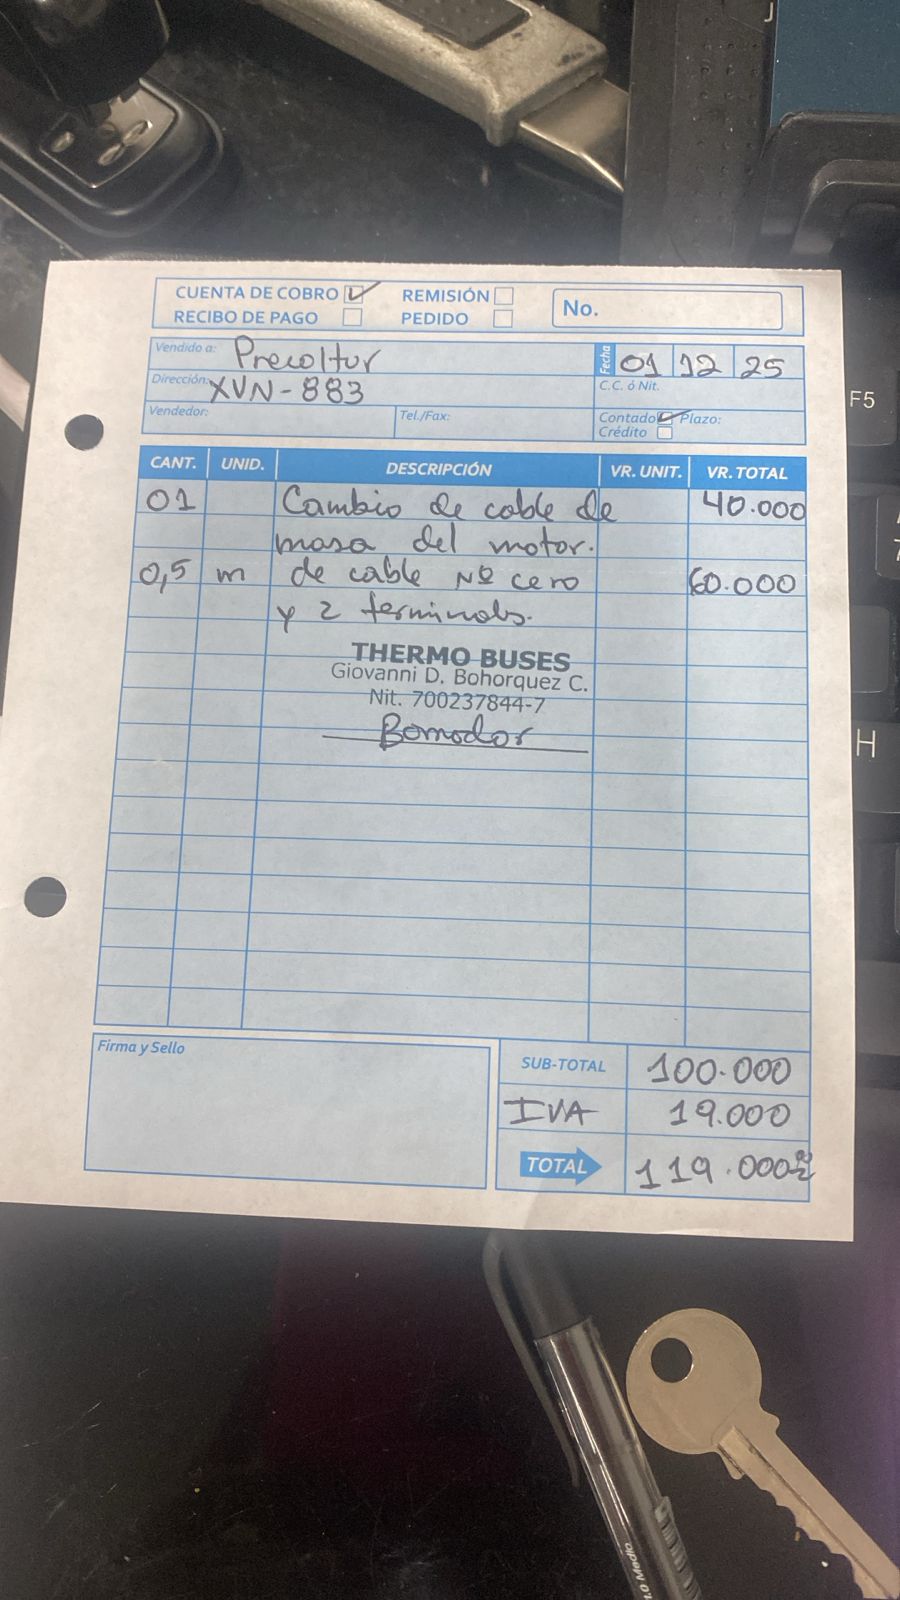 CUENTA DE COBRO REMISIÓN
RECIBO DE PAGO PEDIDO
No.
Vendido a: Precoltur
Fecha 01 12 25
Dirección: XVN-883
C.C. ó Nit.
Vendedor: Tel./Fax:
Contado Plazo:
Crédito
CANT. UNID. DESCRIPCIÓN VR. UNIT. VR. TOTAL
01 Cambio de cable de 40.000
masa del motor.
0,5 m de cable Nº cero 60.000
y 2 terminals.
THERMO BUSES
Giovanni D. Bohorquez C.
Nit. 700237844-7
Firma y Sello
SUB-TOTAL 100.000
IVA 19.000
TOTAL 119.000
F5
H